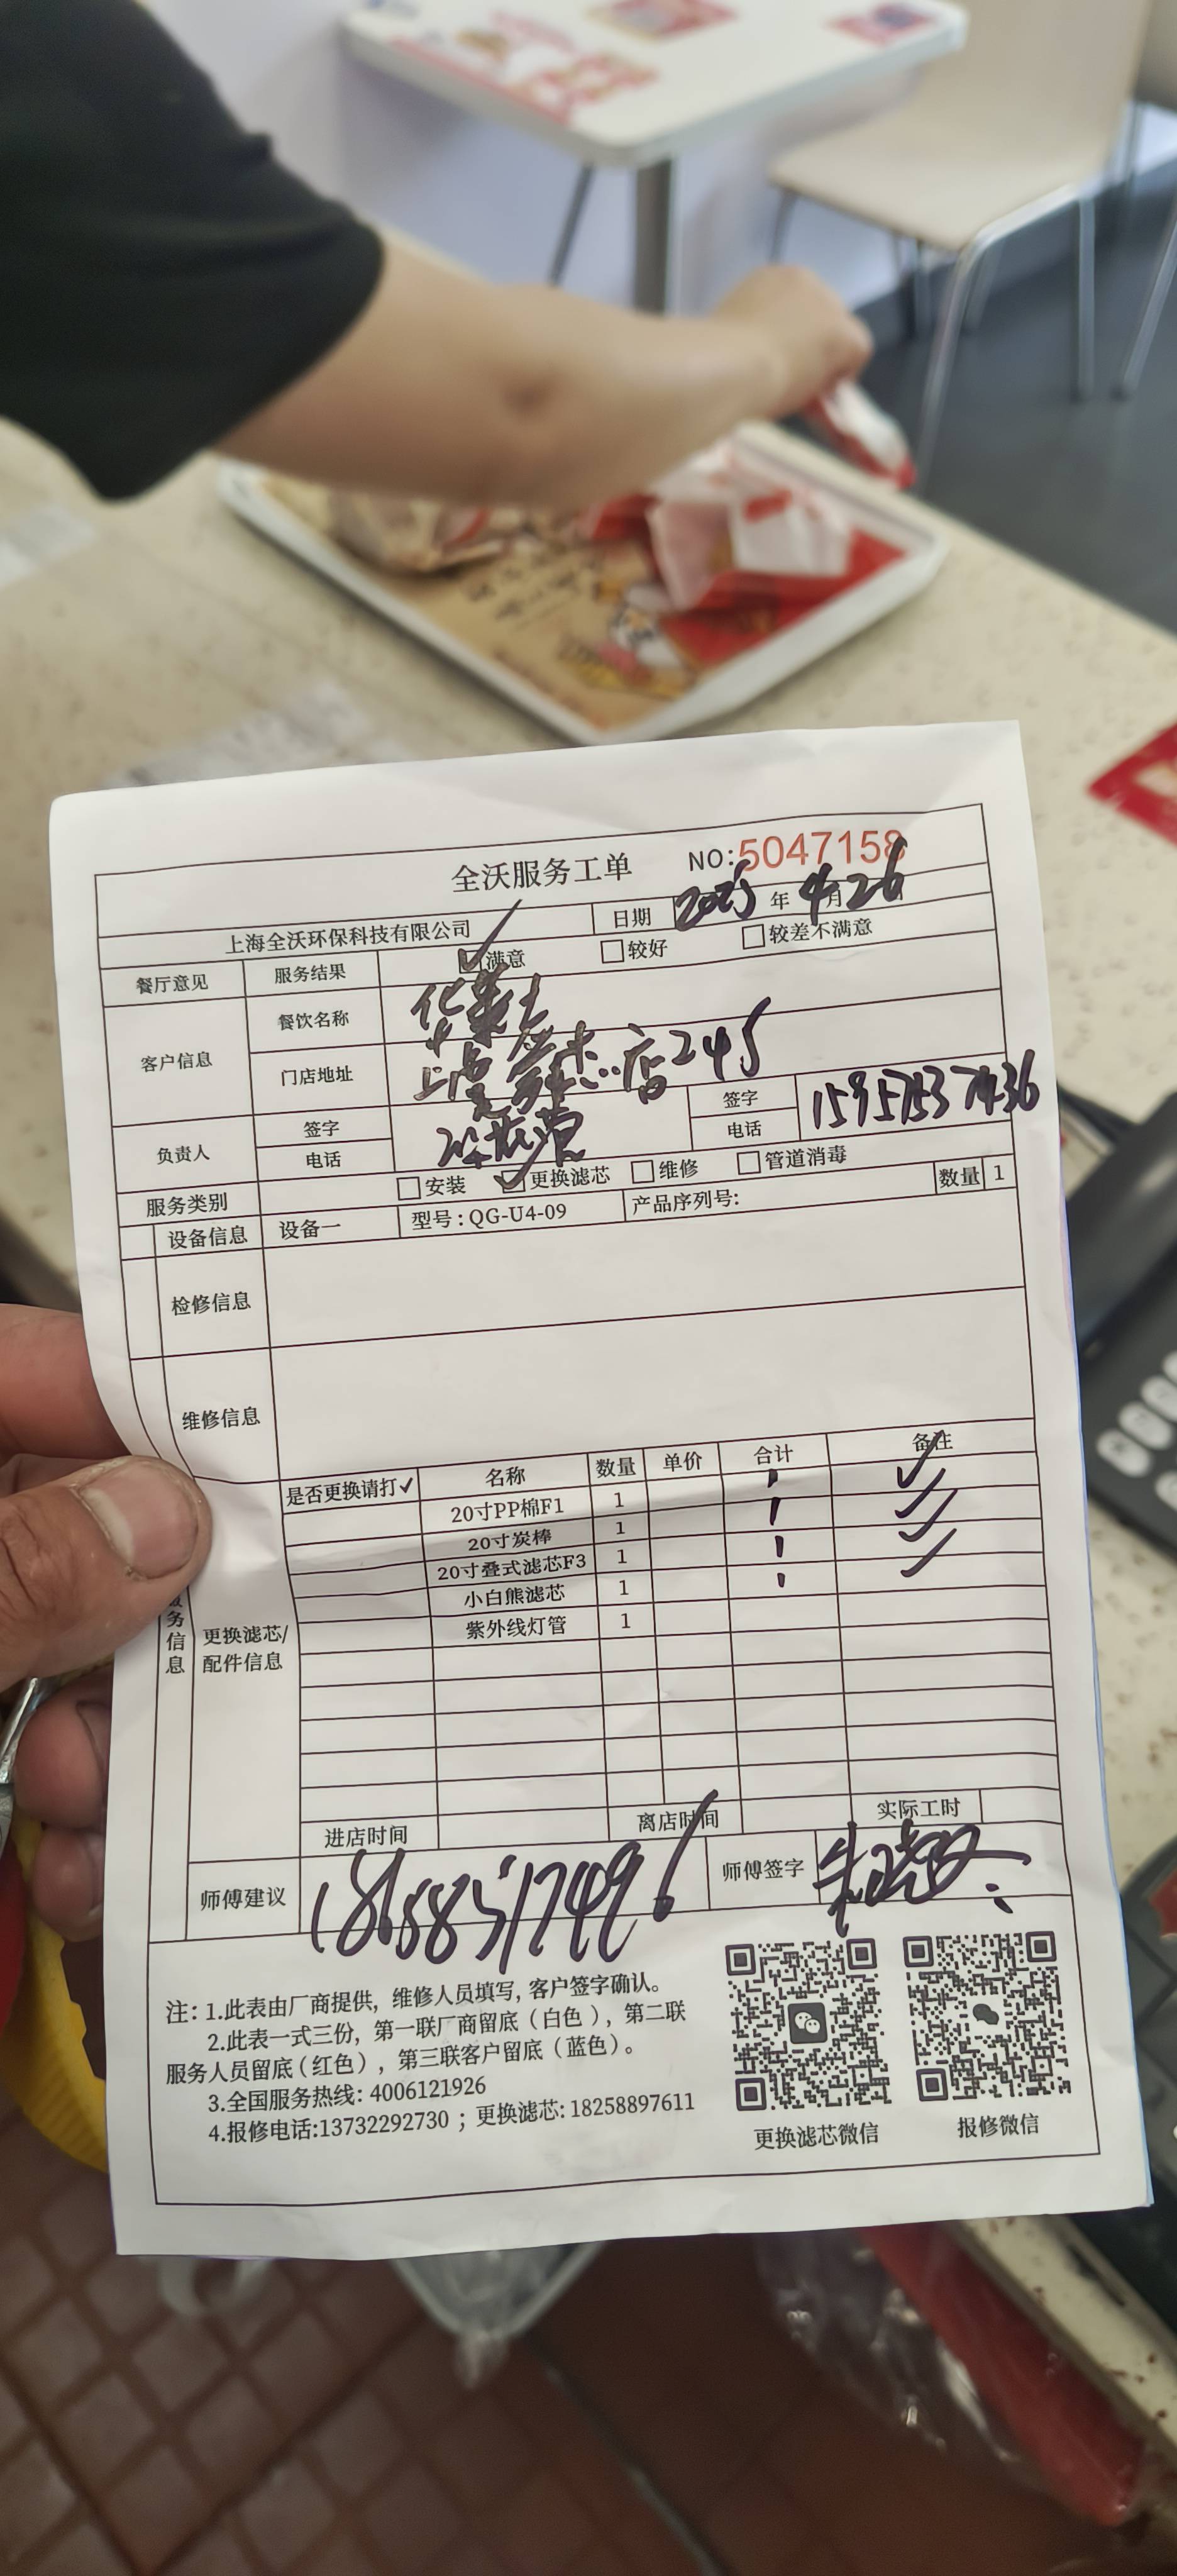 全沃服务工单 NO:5047158
上海全沃环保科技有限公司 日期 2025年4月26
餐厅意见 服务结果 ☑满意 □较好 □较差不满意
客户信息 餐饮名称 华莱士
门店地址 上虞 店245
负责人 签字 电话 签字 电话
服务类别 □安装 ☑更换滤芯 □维修 □管道消毒
设备信息 设备一 型号:QG-U4-09 产品序列号: 数量 1
检修信息
维修信息
服务信息
更换滤芯/
配件信息
是否更换请打✓ 名称 数量 单价 合计 备注
20寸PP棉F1 1 1 ✓
20寸炭棒 1 1 ✓
20寸叠式滤芯F3 1 1 ✓
小白熊滤芯 1 1 ✓
紫外线灯管 1
进店时间 离店时间 实际工时
师傅建议 师傅签字
注: 1.此表由厂商提供, 维修人员填写, 客户签字确认。
2.此表一式三份, 第一联厂商留底(白色), 第二联
服务人员留底(红色), 第三联客户留底(蓝色)。
3.全国服务热线: 4006121926
4.报修电话:13732292730 ; 更换滤芯: 18258897611
更换滤芯微信 报修微信